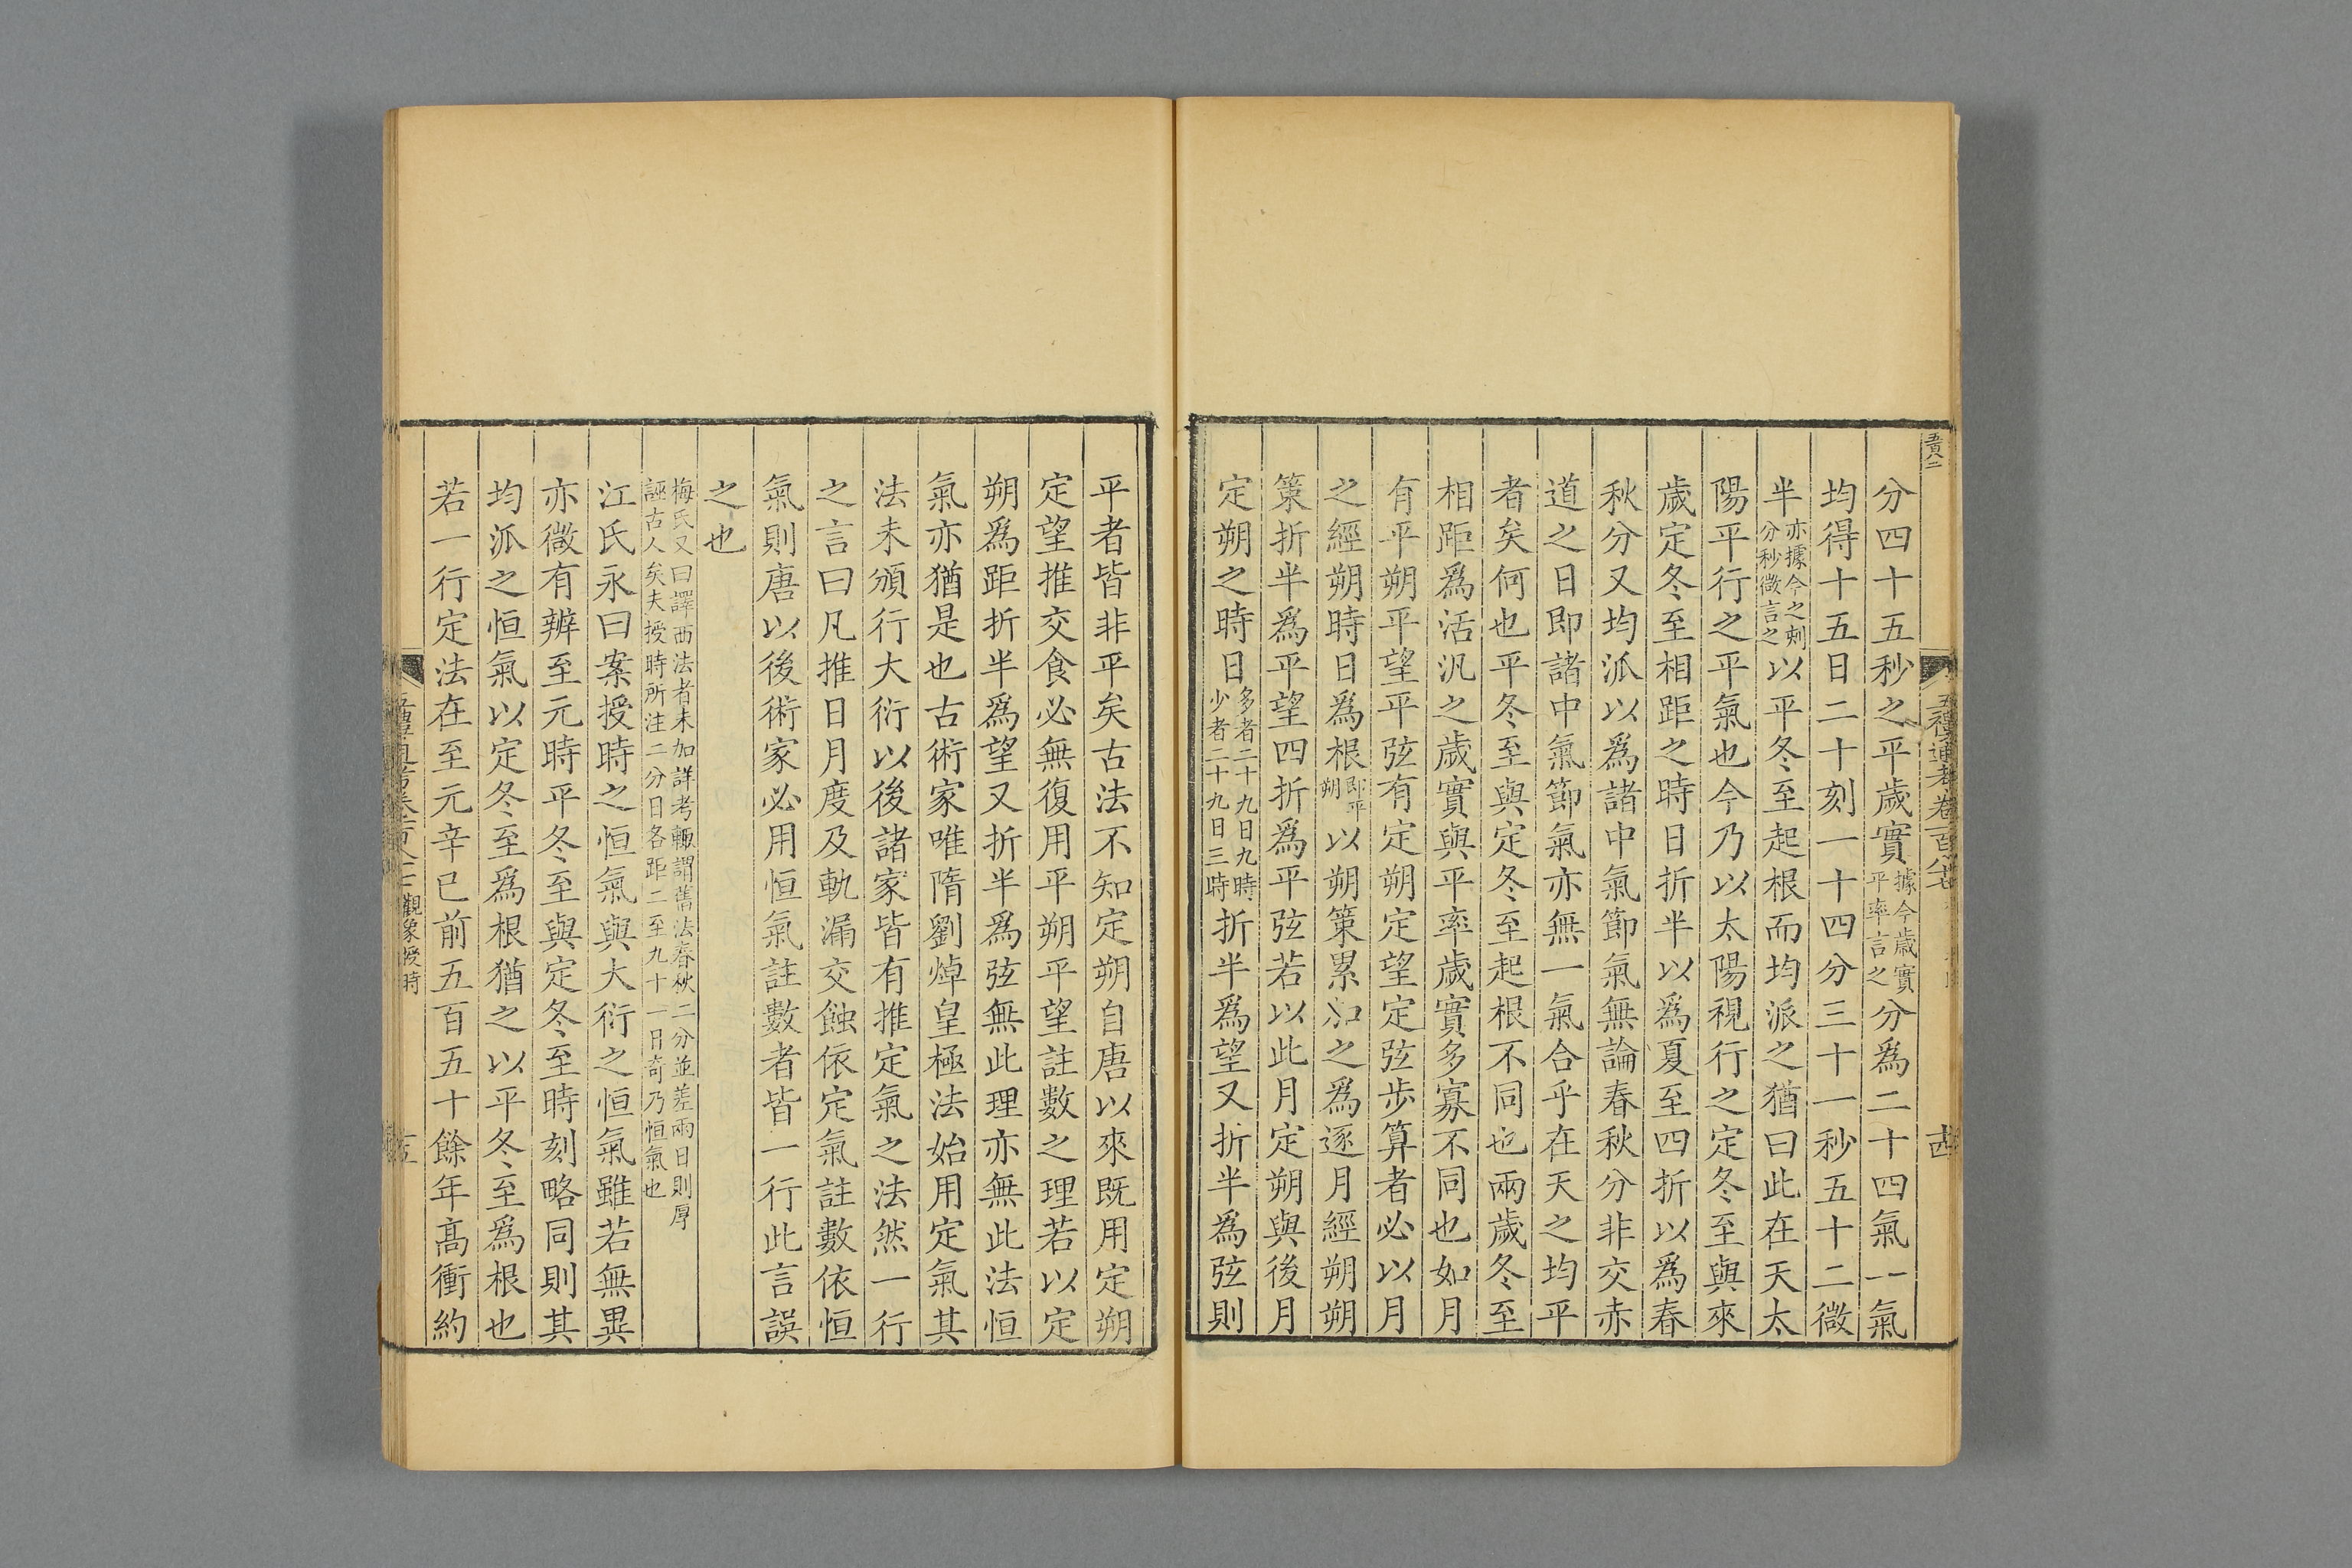 分四十五秒之平歲實據今歲實平率言之分爲二十四氣一氣
均得十五日二十刻一十四分三十一秒五十二微
半亦據今之刻分秒微言之以平冬至起根而均派之猶曰此在天太
陽平行之平氣也今乃以太陽視行之定冬至與來
歲定冬至相距之時日折半以爲夏至四折以爲春
秋分又均派以爲諸中氣節氣無論春秋分非交赤
道之日即諸中氣節氣亦無一氣合乎在天之均平
者矣何也平冬至與定冬至起根不同也兩歲冬至
相距爲活汎之歲實與平率歲實多寡不同也如月
有平朔平望平弦有定朔定望定弦步算者必以月
之經朔時日爲根即平朔以朔策累加之爲逐月經朔朔
策折半爲平望四折爲平弦若以此月定朔與後月
定朔之時日多者二十九日九時少者二十九日三時折半爲望又折半爲弦則
五禮通考卷一百八十
古
平者皆非平矣古法不知定朔自唐以來既用定朔
定望推交食必無復用平朔平望註數之理若以定
朔爲距折半爲望又折半爲弦無此理亦無此法恒
氣亦猶是也古術家唯隋劉焯皇極法始用定氣其
法未頒行大衍以後諸家皆有推定氣之法然一行
之言曰凡推日月度及軌漏交蝕依定氣註數依恒
氣則唐以後術家必用恒氣註數者皆一行此言誤
之也
梅氏又曰譯西法者未加詳考輙謂舊法春秋二分並差兩日則厚
誣古人矣夫授時所注二分日各距二至九十一日奇乃恒氣也
江氏永曰案授時之恒氣與大衍之恒氣雖若無異
亦微有辨至元時平冬至與定冬至時刻略同則其
均派之恒氣以定冬至爲根猶之以平冬至爲根也
若一行定法在至元辛巳前五百五十餘年高衝約
觀象授時